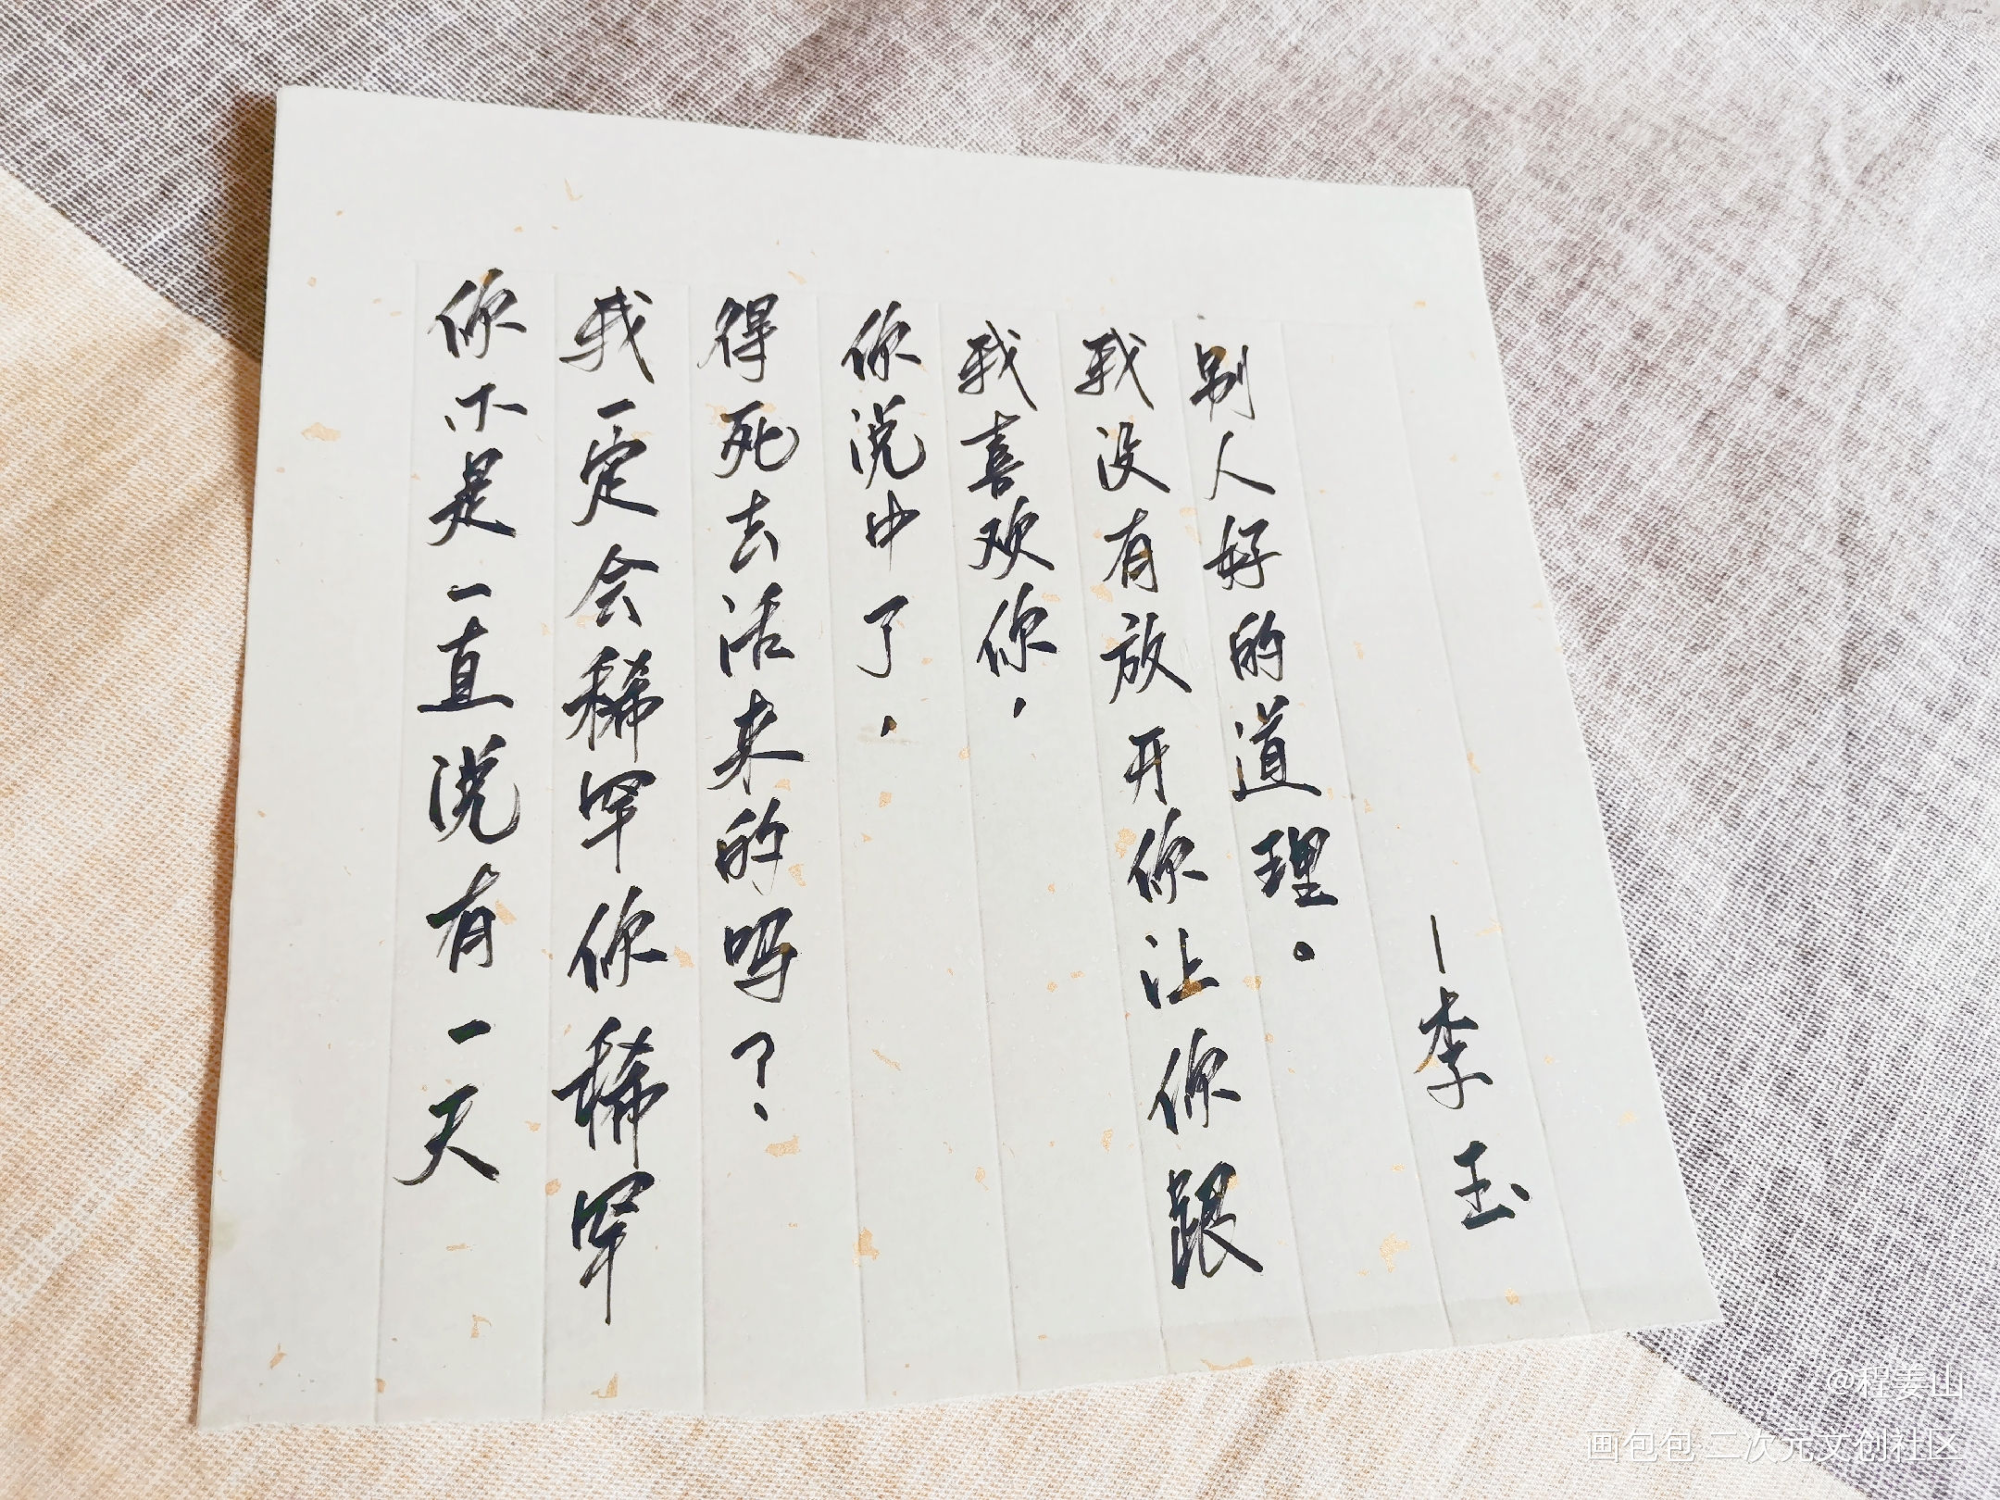 你不是一直说有一天
我一定会稀罕你稀罕
得死去活来的吗？
你说中了，
我喜欢你，
我没有放开你让你跟
别人好的道理。
—李玉
@程姜山
画包包 二次元文创社区